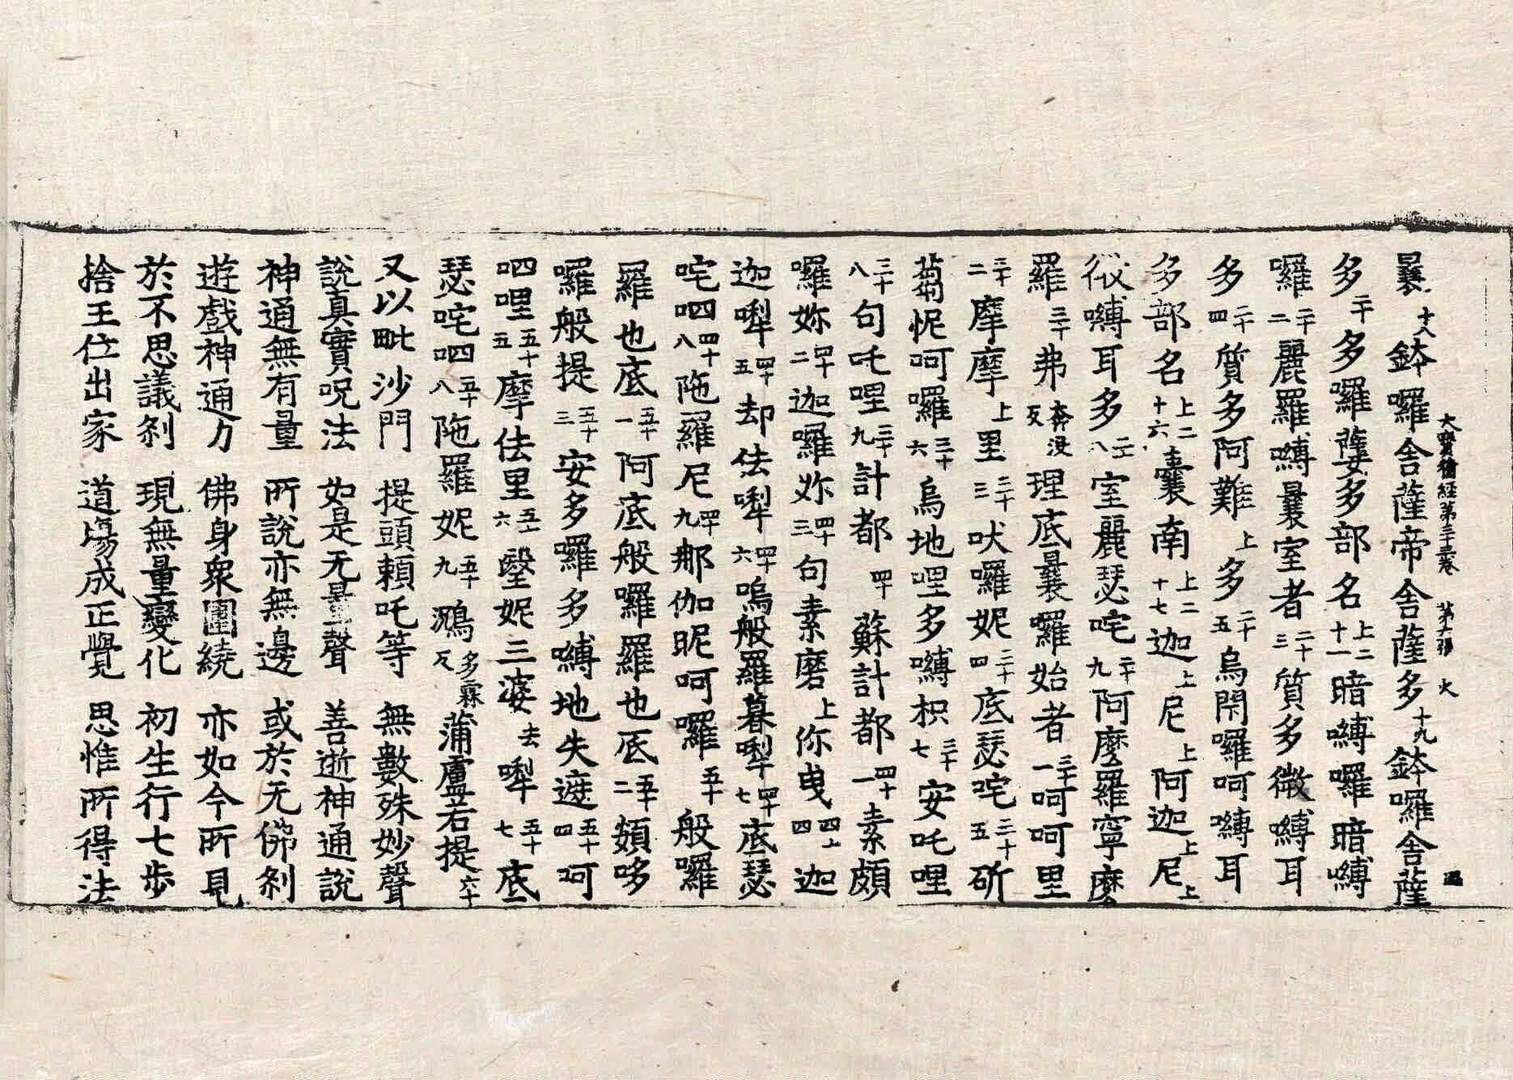 曩十八鉢囉舍薩帝舍薩多十九鉢囉舍薩
大寶積經第三十卷 第六張 火
多二十多囉蘡多部名上二十一暗縛囉暗縛
囉二十二麗羅嚩曩室者二十三質多微嚩耳
多二十四質多阿難上多二十五烏閇囉呵嚩耳
多部名上二十六囊南上二十七迦上尼上阿迦上尼上
微嚩耳多二十八室麗瑟咤二十九阿麼羅寧麼
羅三十弗奔沒反理底曩囉始者三十一呵呵里
三十二摩摩上里三十三吠囉妮三十四底瑟咤三十五斫
蒭怩呵囉三十六烏地哩多嚩枳三十七安吒哩
三十八句吒哩三十九計都四十蘇計都四十一素頗
囉妳四十二迦囉妳四十三句素磨上你曳四十四迦
迦犁四十五却佉犁四十六嗚般羅暮犁四十七底瑟
咤呬四十八陁羅尼四十九那伽昵呵囉五十般囉
羅也底五十一阿底般囉羅也底五十二頞哆
囉般提五十三安多囉多嚩地失遮五十四呵
呬哩五十五摩佉里五十六毉妮三婆去犁五十七底
瑟咤呬五十八陁羅妮五十九鴻多霖反蒲盧若提六十
又以毗沙門 提頭賴吒等 無數殊妙聲
說真實呪法 如是无量聲 善逝神通說
神通無有量 所說亦無邊 或於无佛剎
遊戲神通力 佛身眾圍繞 亦如今所見
於不思議剎 現無量變化 初生行七步
捨王位出家 道場成正覺 思惟所得法